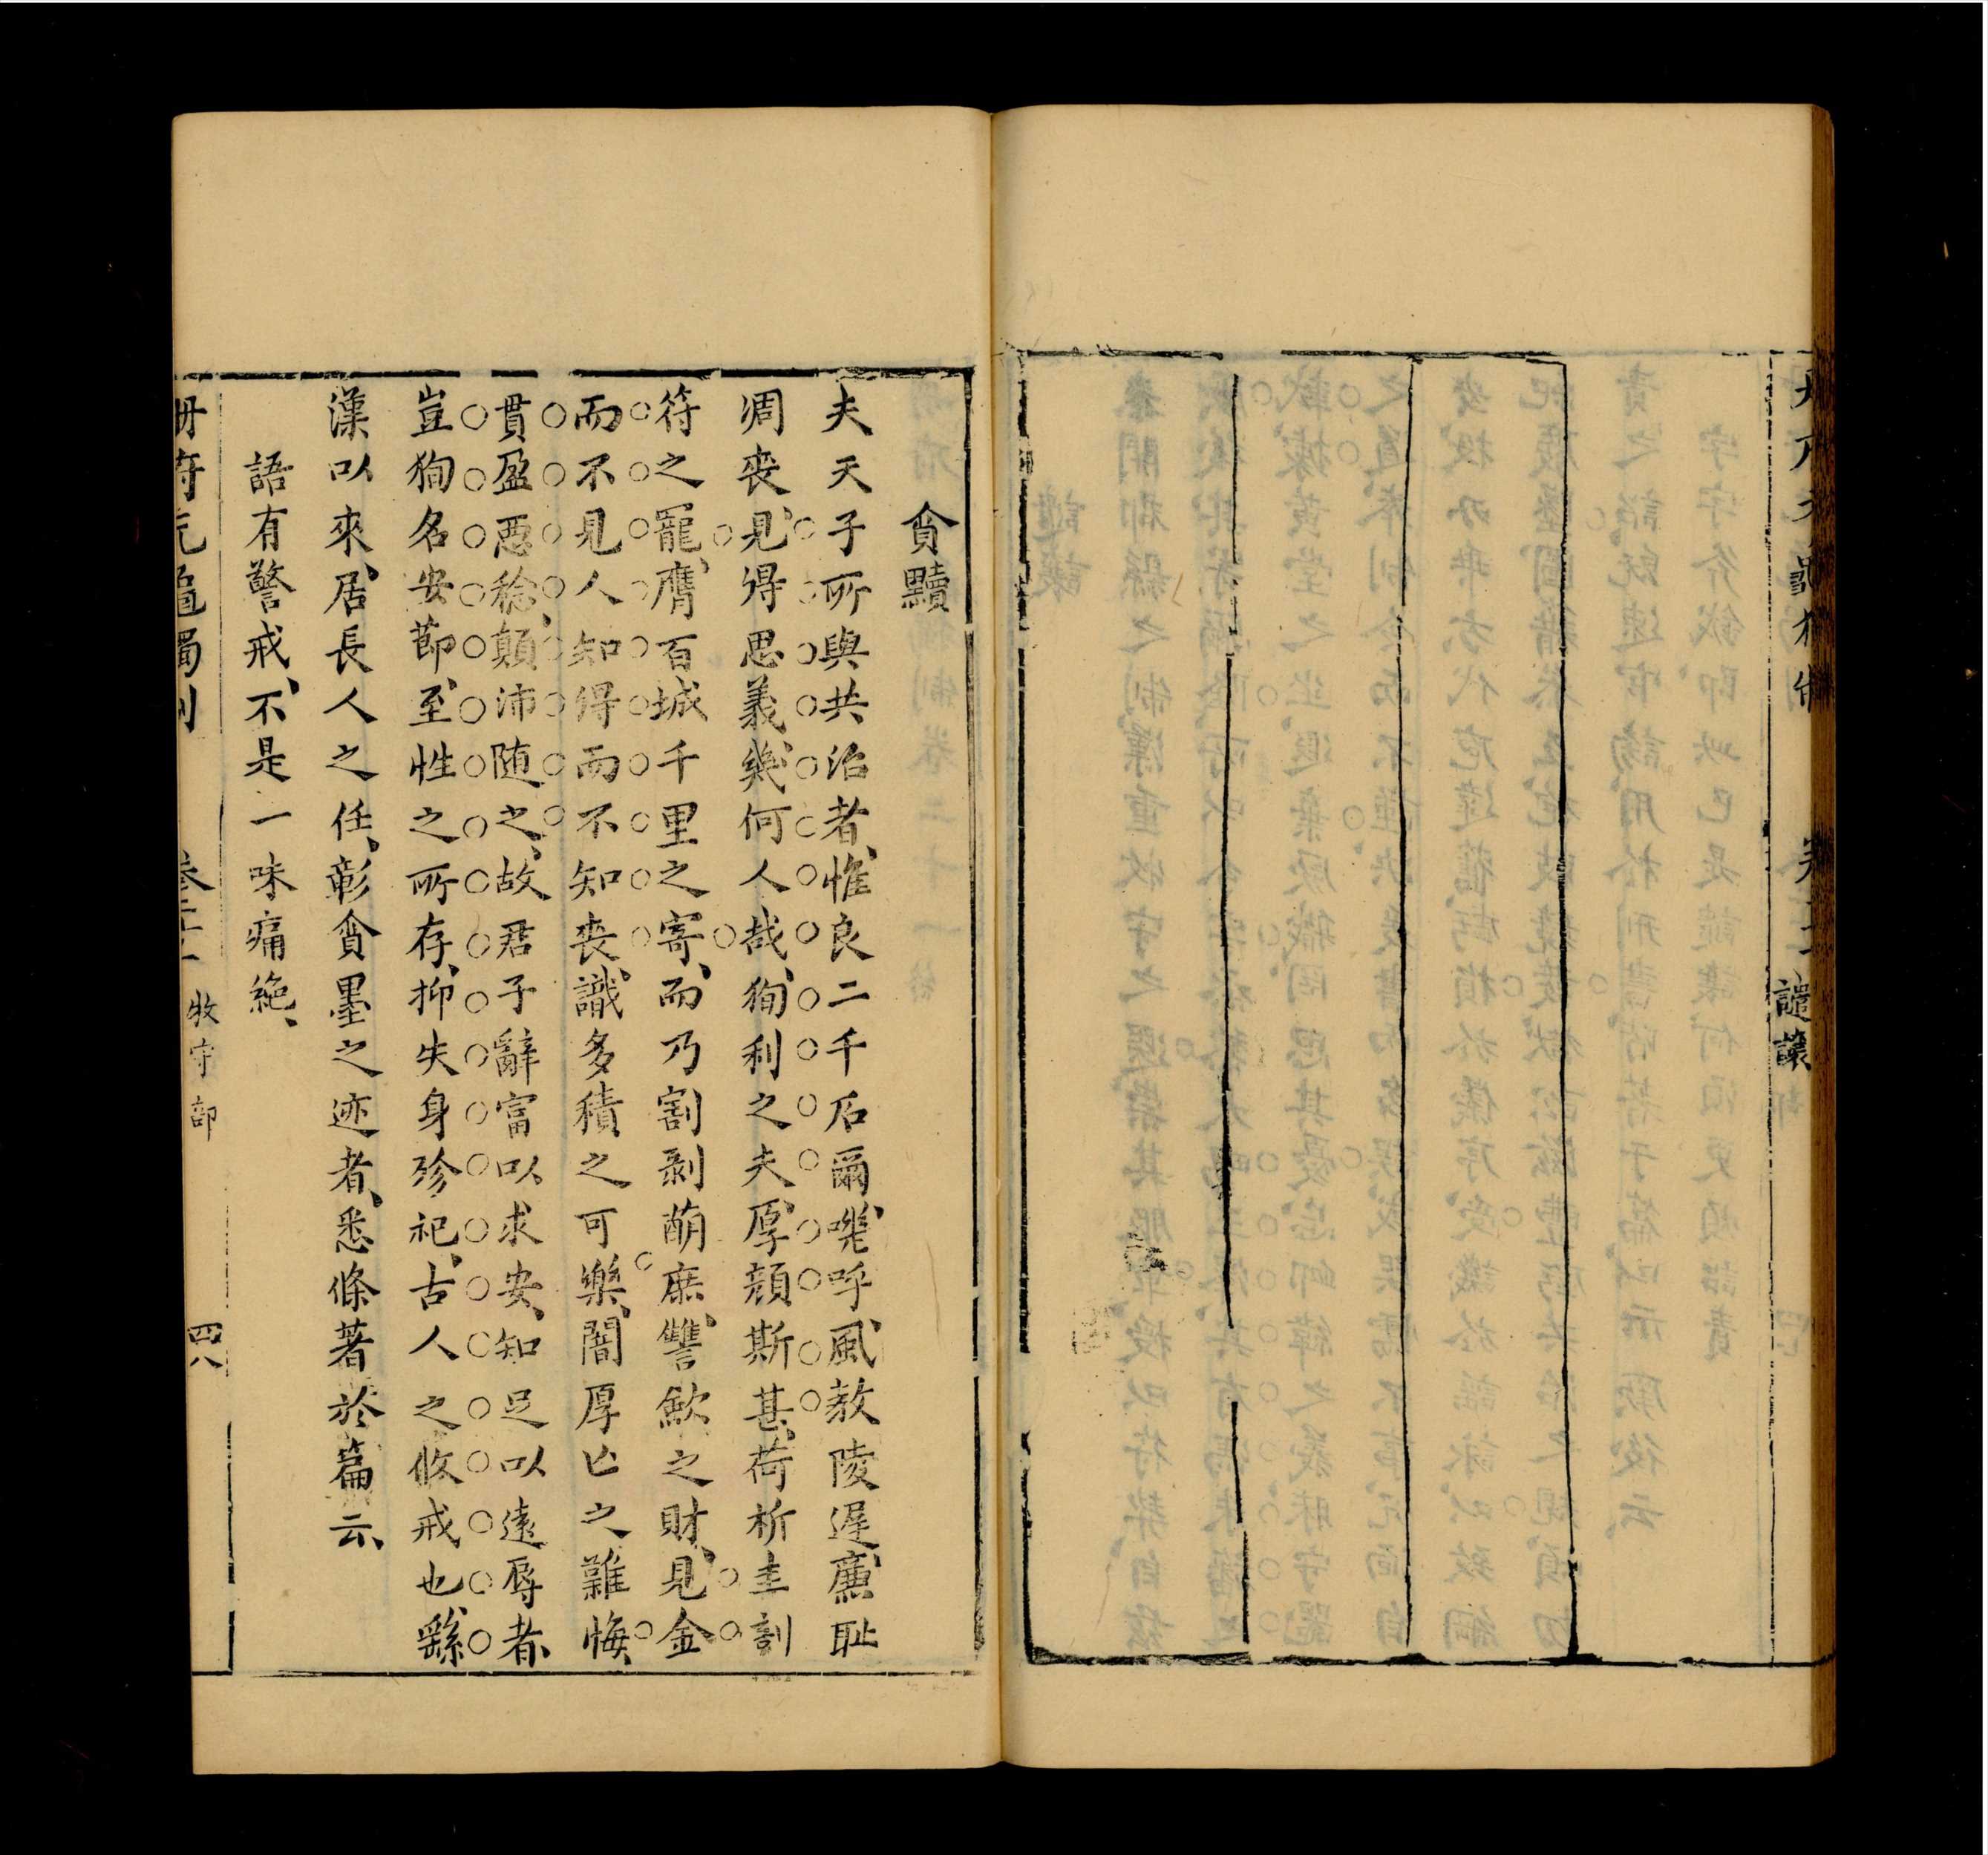 譴讓
貪黷
夫天子所與共治者惟良二千石爾嘅呼風敎陵遅廉耻
凋丧見得思義幾何人哉狥利之夫厚顔斯甚荷析圭割
符之寵膺百城千里之寄而乃割剥萌庶讐歛之財見金
而不見人知得而不知喪識多積之可樂闇厚亾之難悔
貫盈惡稔顛沛随之故君子辭富以求安知足以遠辱者
豈狥名安節至性之所存抑失身殄祀古人之攸戒也繇
漢以來居長人之任彰貪墨之迹者悉條著於篇云
語有警戒不是一味痛絶
冊府元龜獨制
牧守部
四八